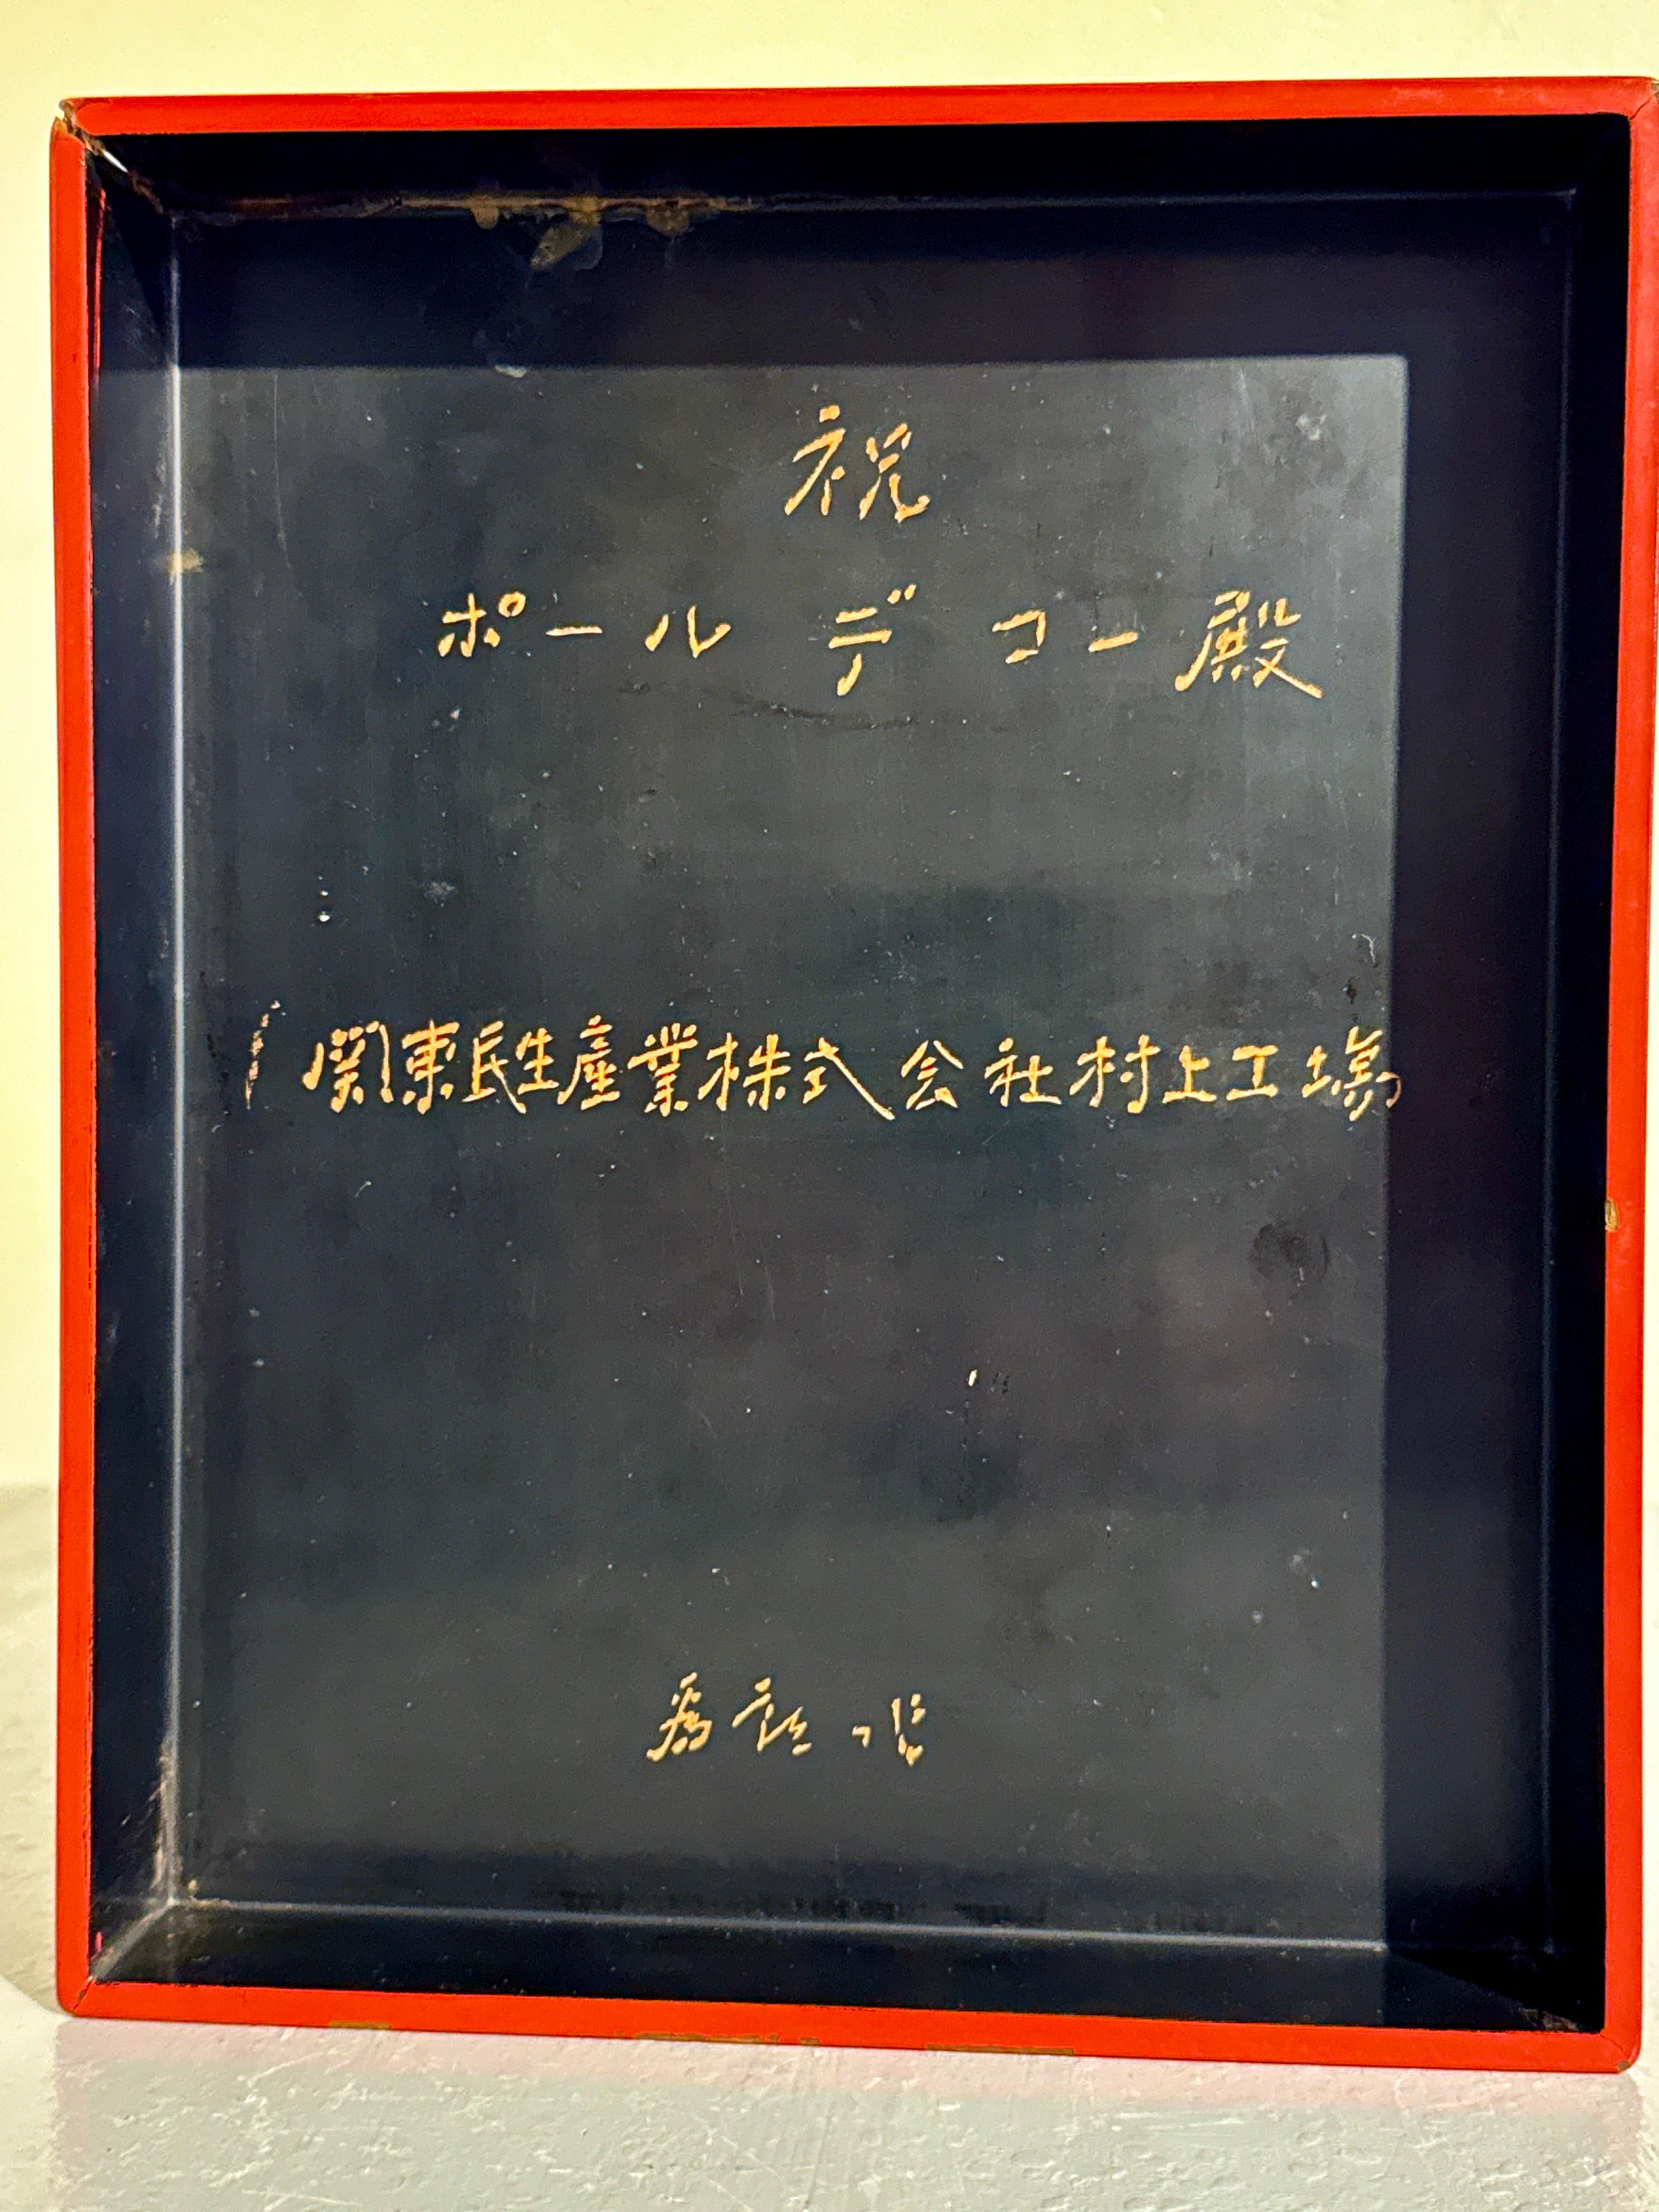 祝
ポール デコー殿
関東民生産業株式会社村上工場